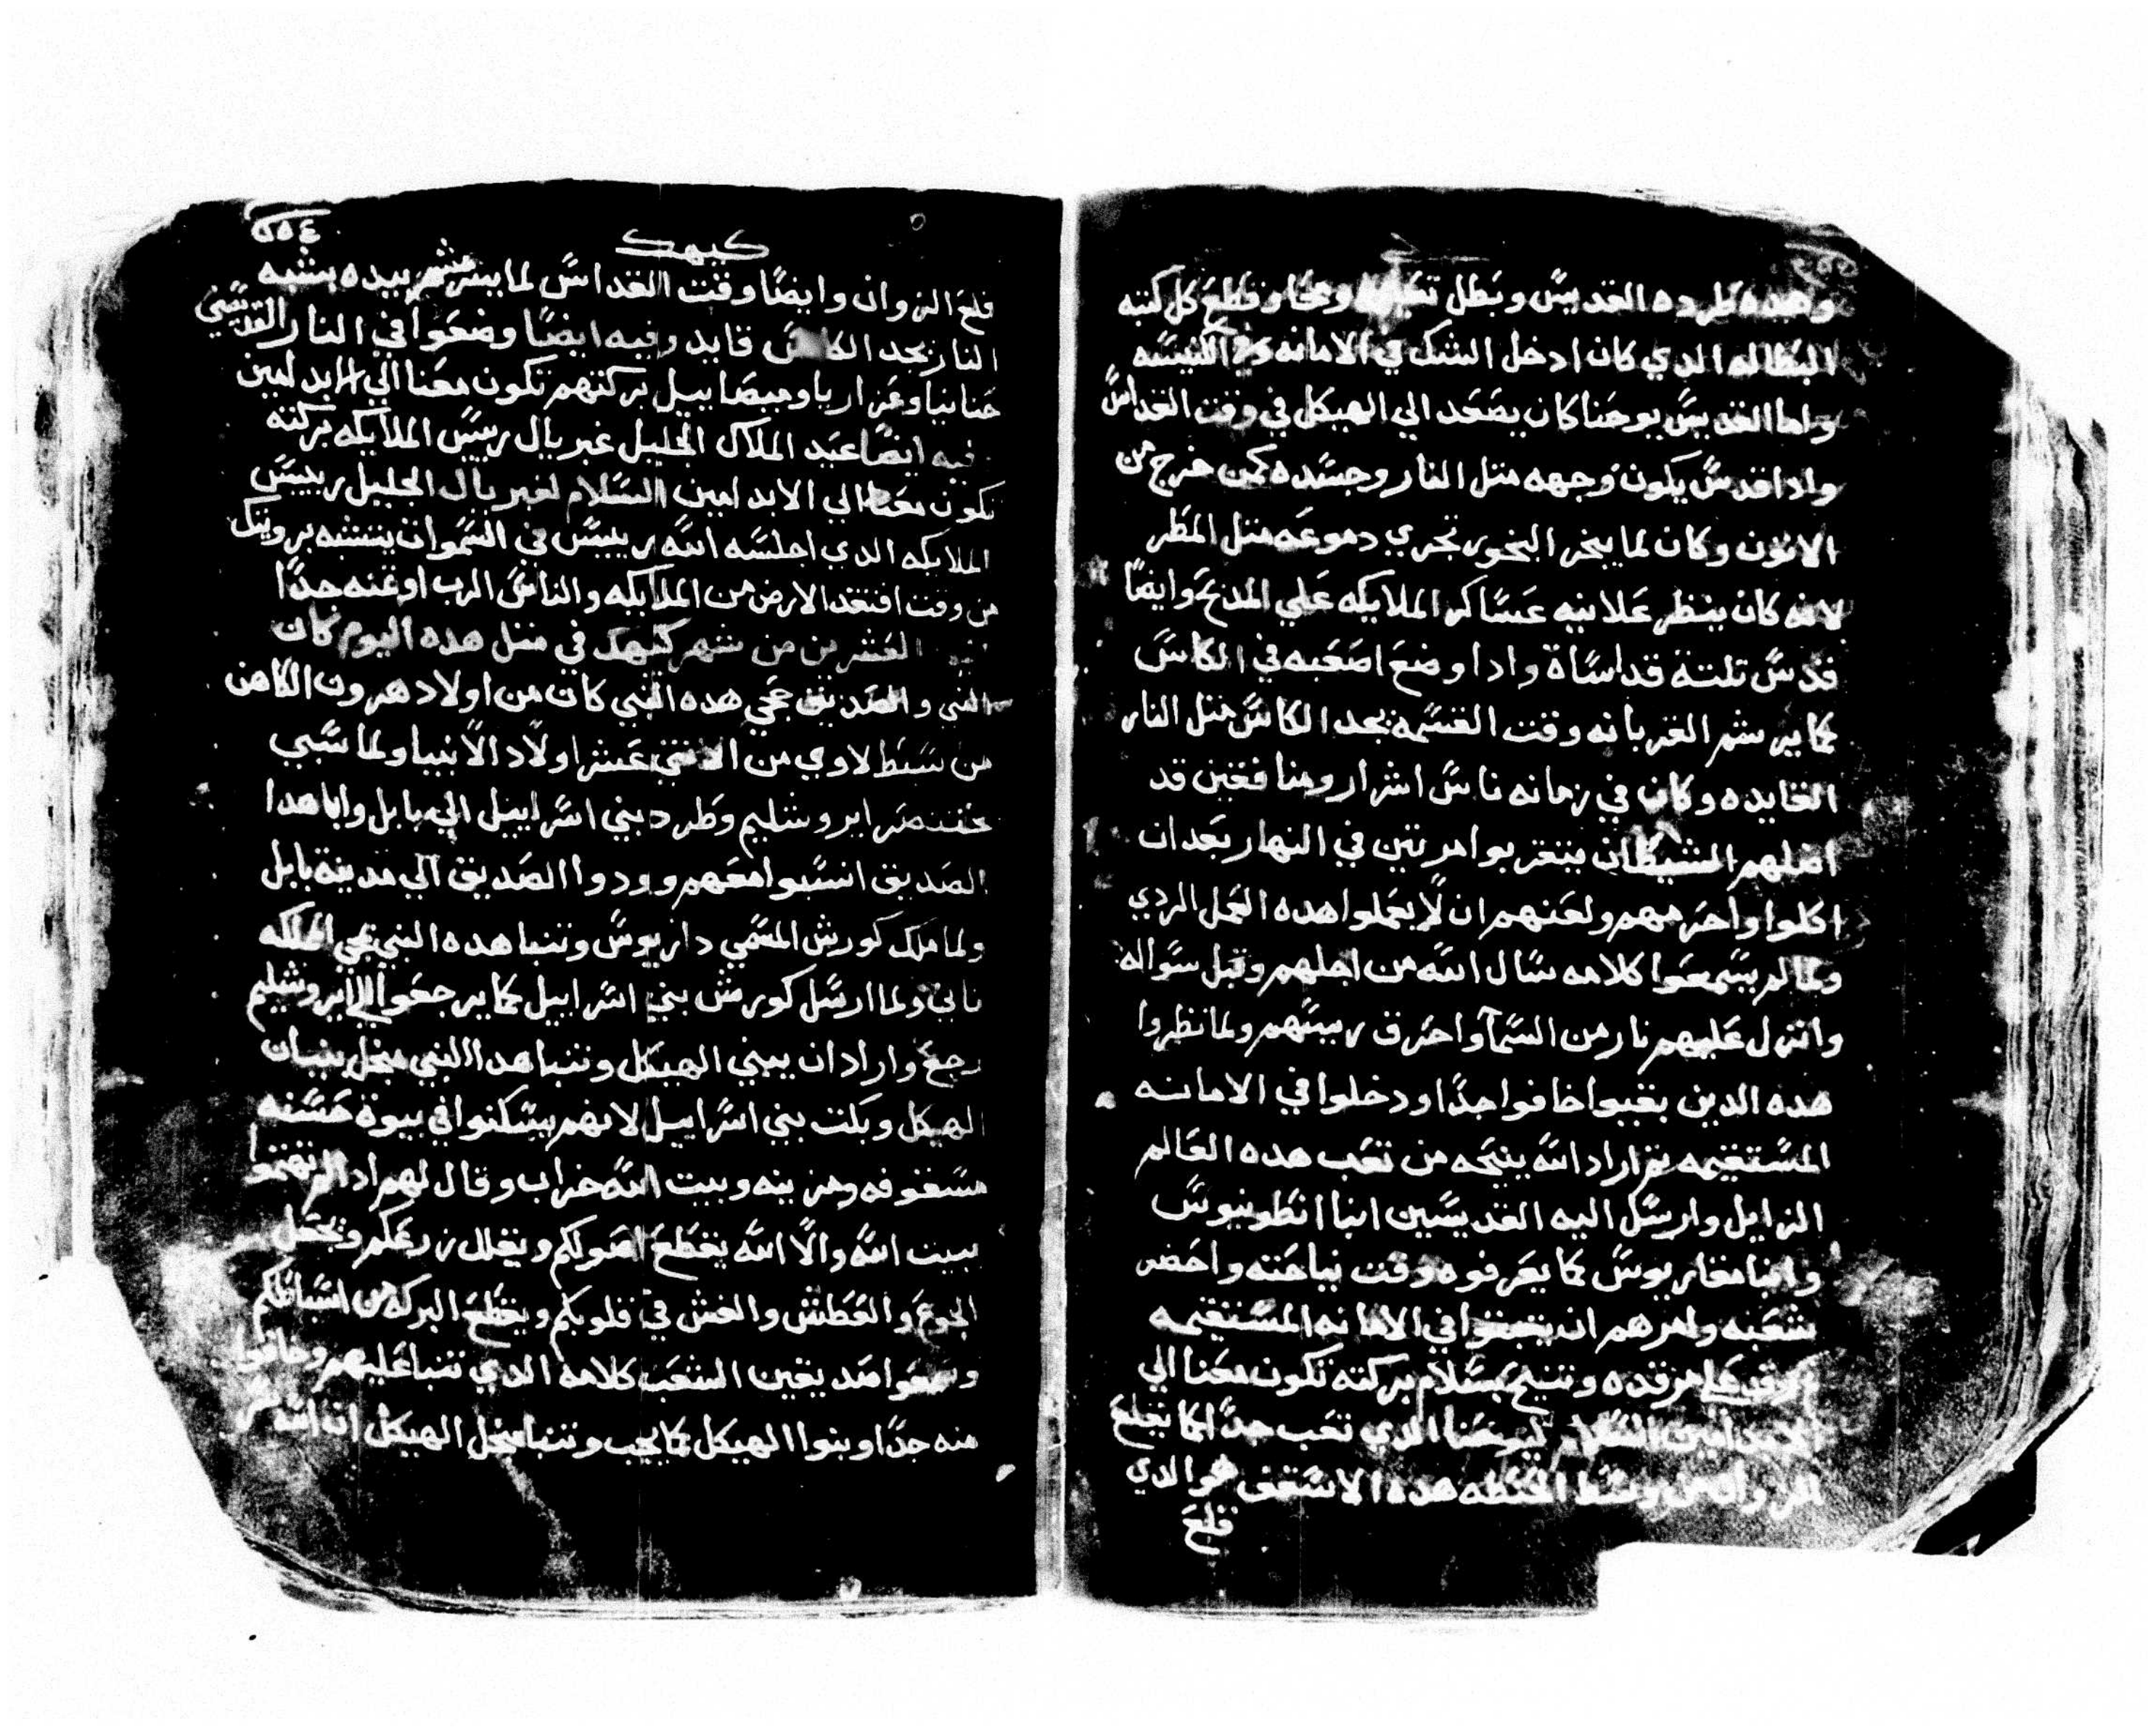 وهده طرده القديس وبطل ومحا وقطع كل كتبه
البطاله الدي كان ادخل الشك في الامانه في الكنيسه
واما القديس يوحنا كان يصعد الي الهيكل في وقت القداس
وادا قدس يكون وجهه متل النار وجسده كمن خرج من
الاتون وكان لما يبخر البخور تجري دموعه متل المطر
لانه كان ينظر علانيه عساكر الملايكه علي المدبح وايضا
قدس تلتة قداساة وادا وضع اصعبه في الكاس
كما يرشم القربانه وقت القسمه يجد الكاس متل النار
القايده وكان في زمانه ناس اشرار ومنافقين قد
اضلهم الشيطان يتقربوا مرتين في النهار بعد ان
اكلوا واحرمهم ولعنهم ان لا يعملوا هده العمل الردي
ولما لم يسمعوا كلامه سال الله من اجلهم وقبل سواله
وانزل عليهم نار من السما واحرق رييسهم ولما نظروا
هده الدين بقيوا خافوا جدا ودخلوا في الامانه
المستقيمه تم اراد الله ينيحه من تعب هده العالم
الزايل وارسل اليه القديسين انبا انطونيوس
وانبا مقاريوس كما يعرفوه وقت نياحته واحضر
شعبه وامرهم ان يتبتوا في الامانه المستقيمه
مرقده وتنيح بسلام بركته تكون معنا الي
الابد امين السلام ليوحنا الدي تعب جدا كما يقلع
الزوان من وسط الحنطه هده الاسقف هو الدي
قلع
٢٥٤
كيهك
قلع الزوان وايضا وقت القداس لما يرشم بيده يشبه
النار يجد الكاس قايد وفيه ايضا وضعوا في النار القديسين
حنانيا وعزاريا وميصاييل بركتهم تكون معنا الي الابد امين
فيه ايضا عيد الملاك الجليل غبريال رييس الملايكه بركته
تكون معنا الي الابد امين السلام لغبريال الجليل رييس
الملايكه الدي اجلسه الله رييس في السموات يتشبه برويتك
من وقت افتقد الارض من الملايكه والناس الرب اوتمنه جدا
العشرين من شهر كيهك في متل هده اليوم كان
النبي والصديق حجي هده النبي كان من اولاد هرون الكاهن
من سبط لاوي من الاتني عشر اولاد الانبيا ولما سبي
بختنصر ايروشليم وطرد بني اسراييل الي بابل وابا هدا
الصديق انسبوا معهم وودوا الصديق الي مدينة بابل
ولما ملك كورش المسمي داريوس وتنبا هده النبي في المملكه
تاني ولما ارسل كورش بني اسراييل كما يرجعوا الي ايروشليم
رجع واراد ان يبني الهيكل وتنبا هدا النبي مجل بنيان
الهيكل وبكت بني اسراييل لانهم يسكنوا في بيوة حسنه
مسقوفه ومزينه وبيت الله خراب وقال لهم ادا لم تهتموا
ببيت الله والا الله يقطع اصولكم ويقلل زرعكم ويجعل
الجوع والعطش والغش في قلوبكم ويقطع البركه من اسباطكم
وسمعوا صديقين الشعب كلامه الدي تنبا عليهم وخافوا
منه جدا وبنوا الهيكل كما يجب وتنبا مجل الهيكل ان الله